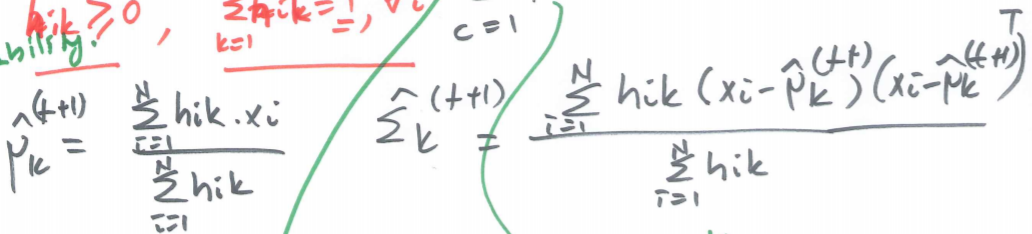 hik ≥ 0 , Σ_{k=1} hik = 1, ∀i
bility.
c = 1
μ̂_k^{(t+1)} = Σ_{i=1}^{N} hik · xi / Σ_{i=1}^{N} hik
Σ̂_k^{(t+1)} = Σ_{i=1}^{N} hik (xi - μ̂_k^{(t+1)}) (xi - μ̂_k^{(t+1)})^T / Σ_{i=1}^{N} hik